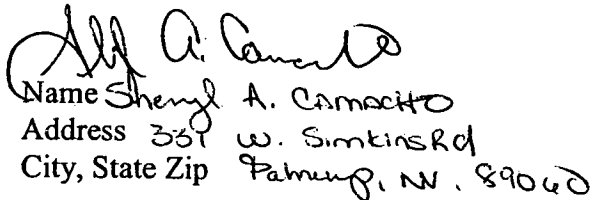 A. Camacho
Name Sheryl A. CAMACHO
Address 331 W. Simkins Rd
City, State Zip Pahrump, NV. 89060